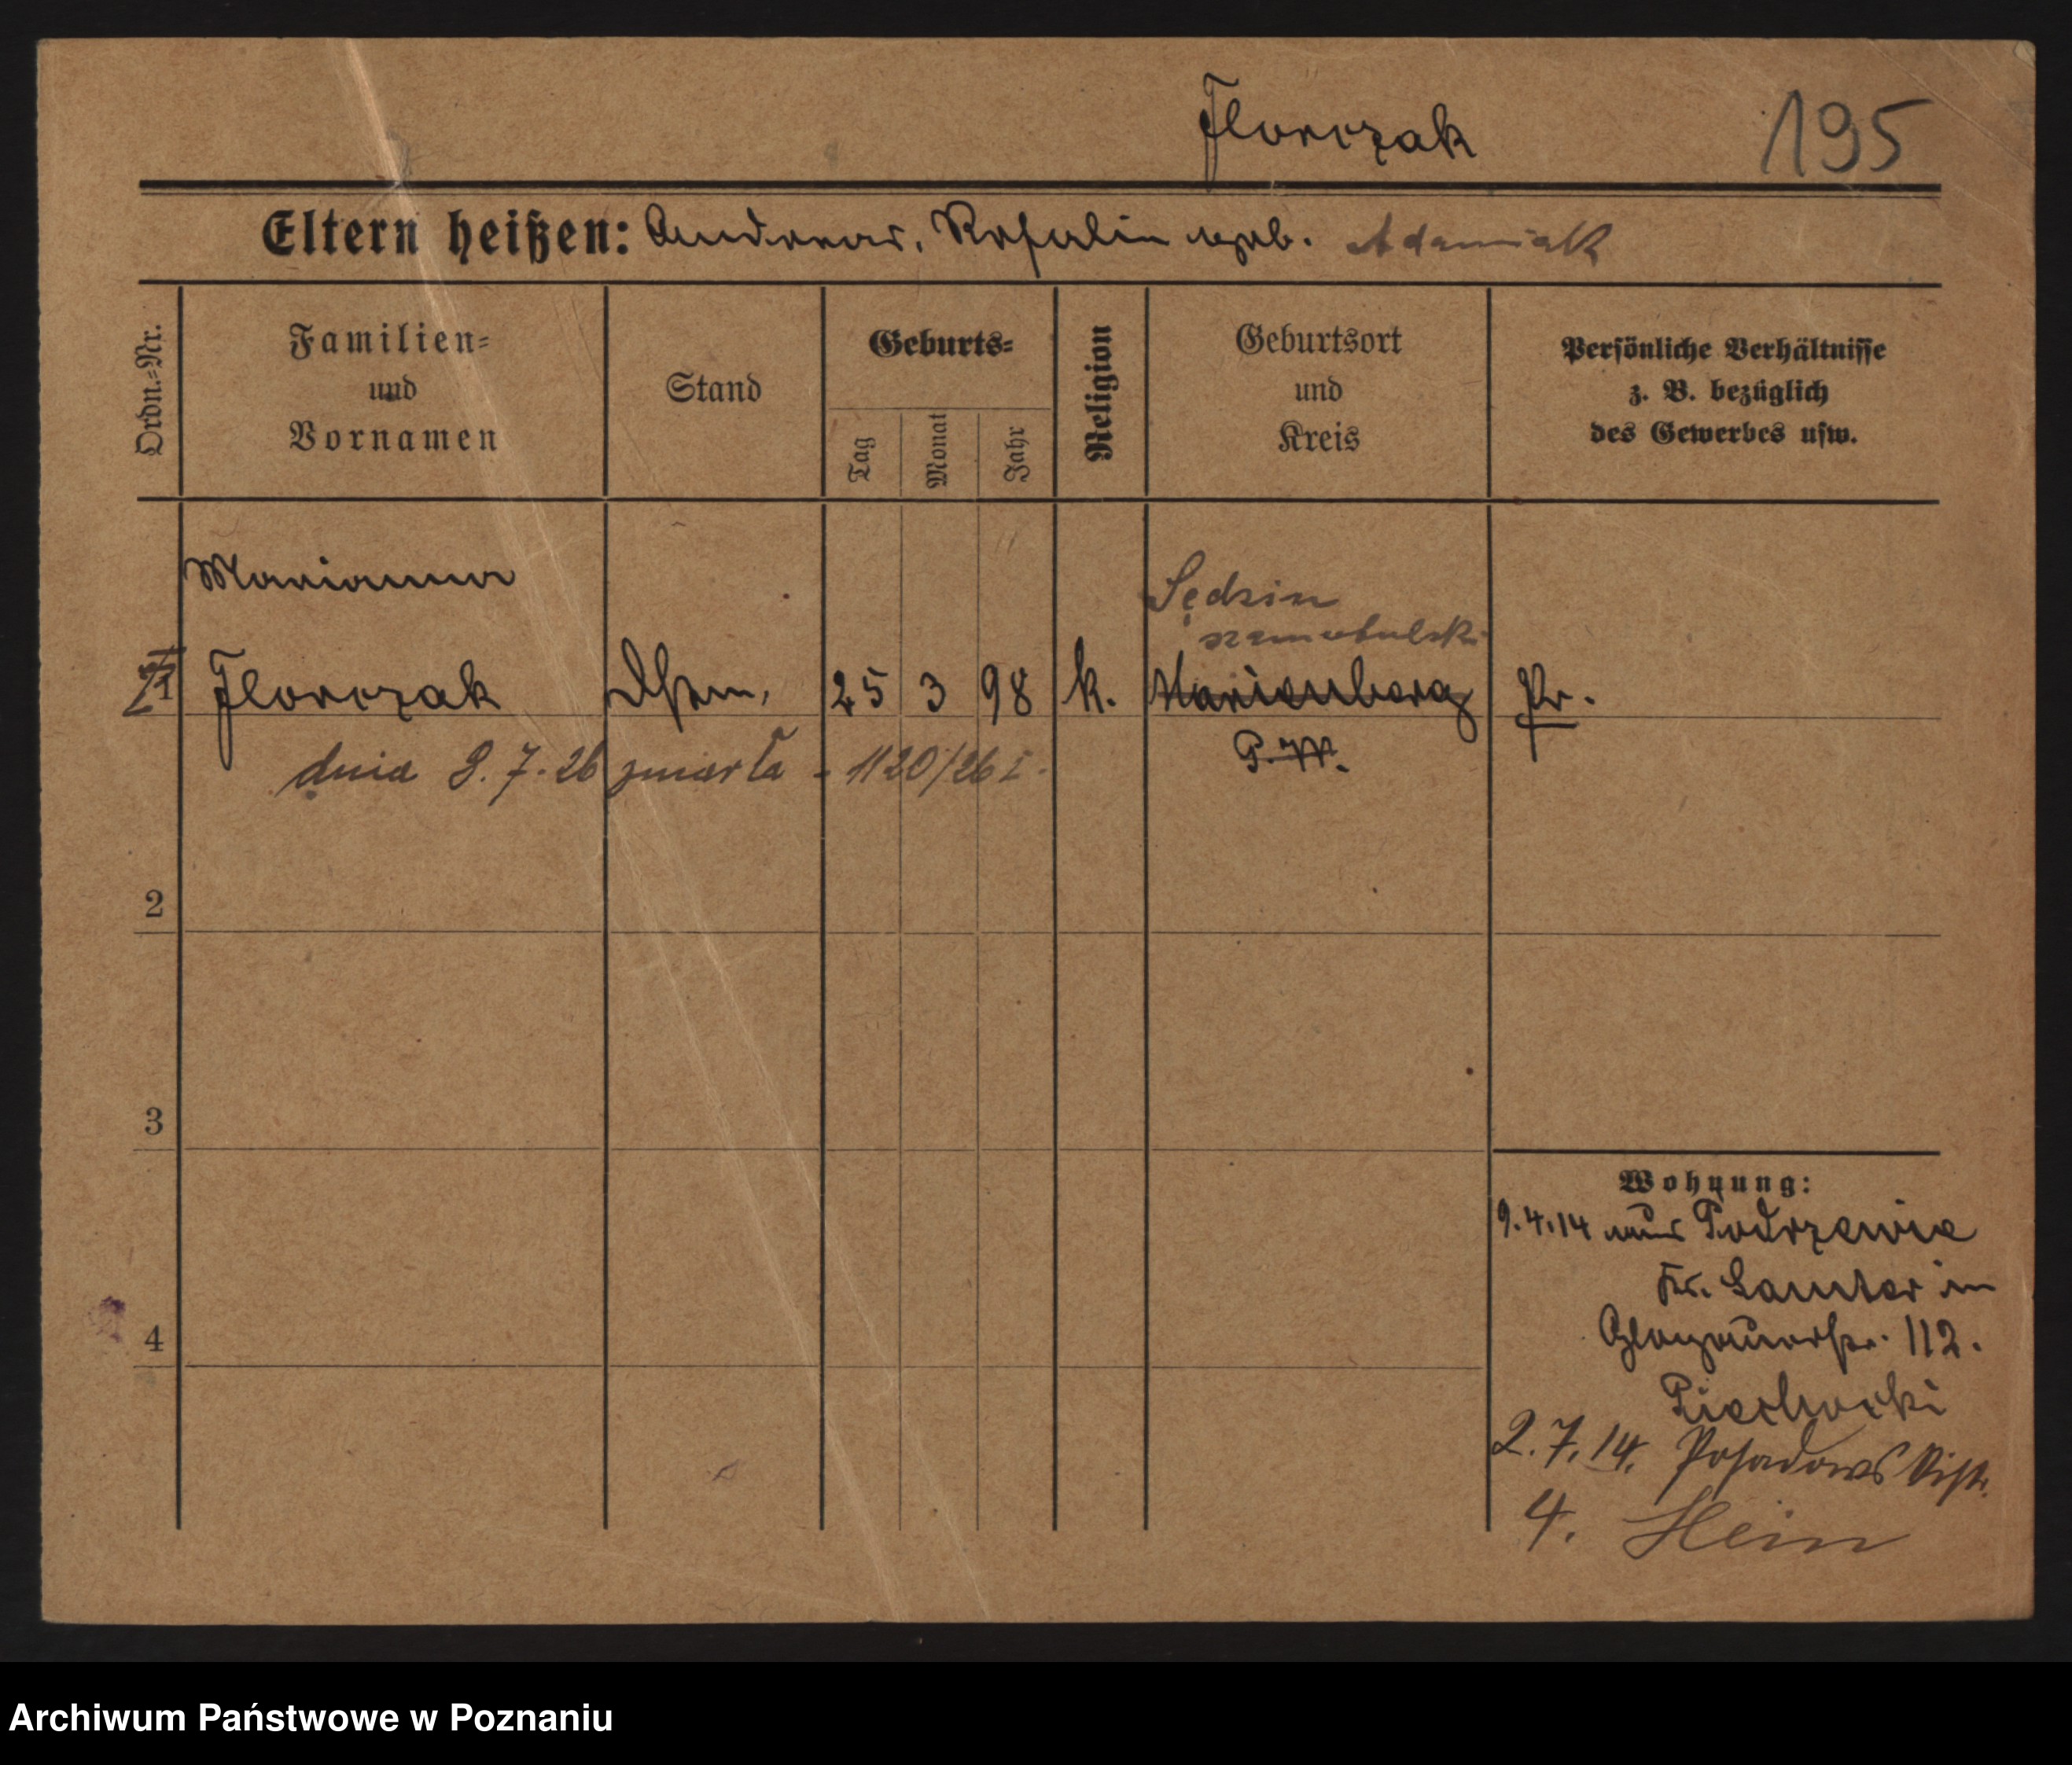 Florczak
195
Eltern heißen: Andreas, Rosalie geb. Adamiak
Ordn.-Nr.
Familien-
und
Vornamen
Stand
Geburts-
Tag
Monat
Jahr
Religion
Geburtsort
und
Kreis
Persönliche Verhältnisse
z. B. bezüglich
des Gewerbes usw.
Marianna
Sędzin
szamotulski
1 Florczak 25 3 98 k. Marienberg Pr.
P. W.
dnia 8.7.26 zmarła - 1120/26 I.
2
3
4
Wohnung:
9.4.14 aus Podrzewie
Kr. Samter in
Glogauerstr. 112.
Piechocki
2.7.14. Posadowskistr.
4. Hein
Archiwum Państwowe w Poznaniu